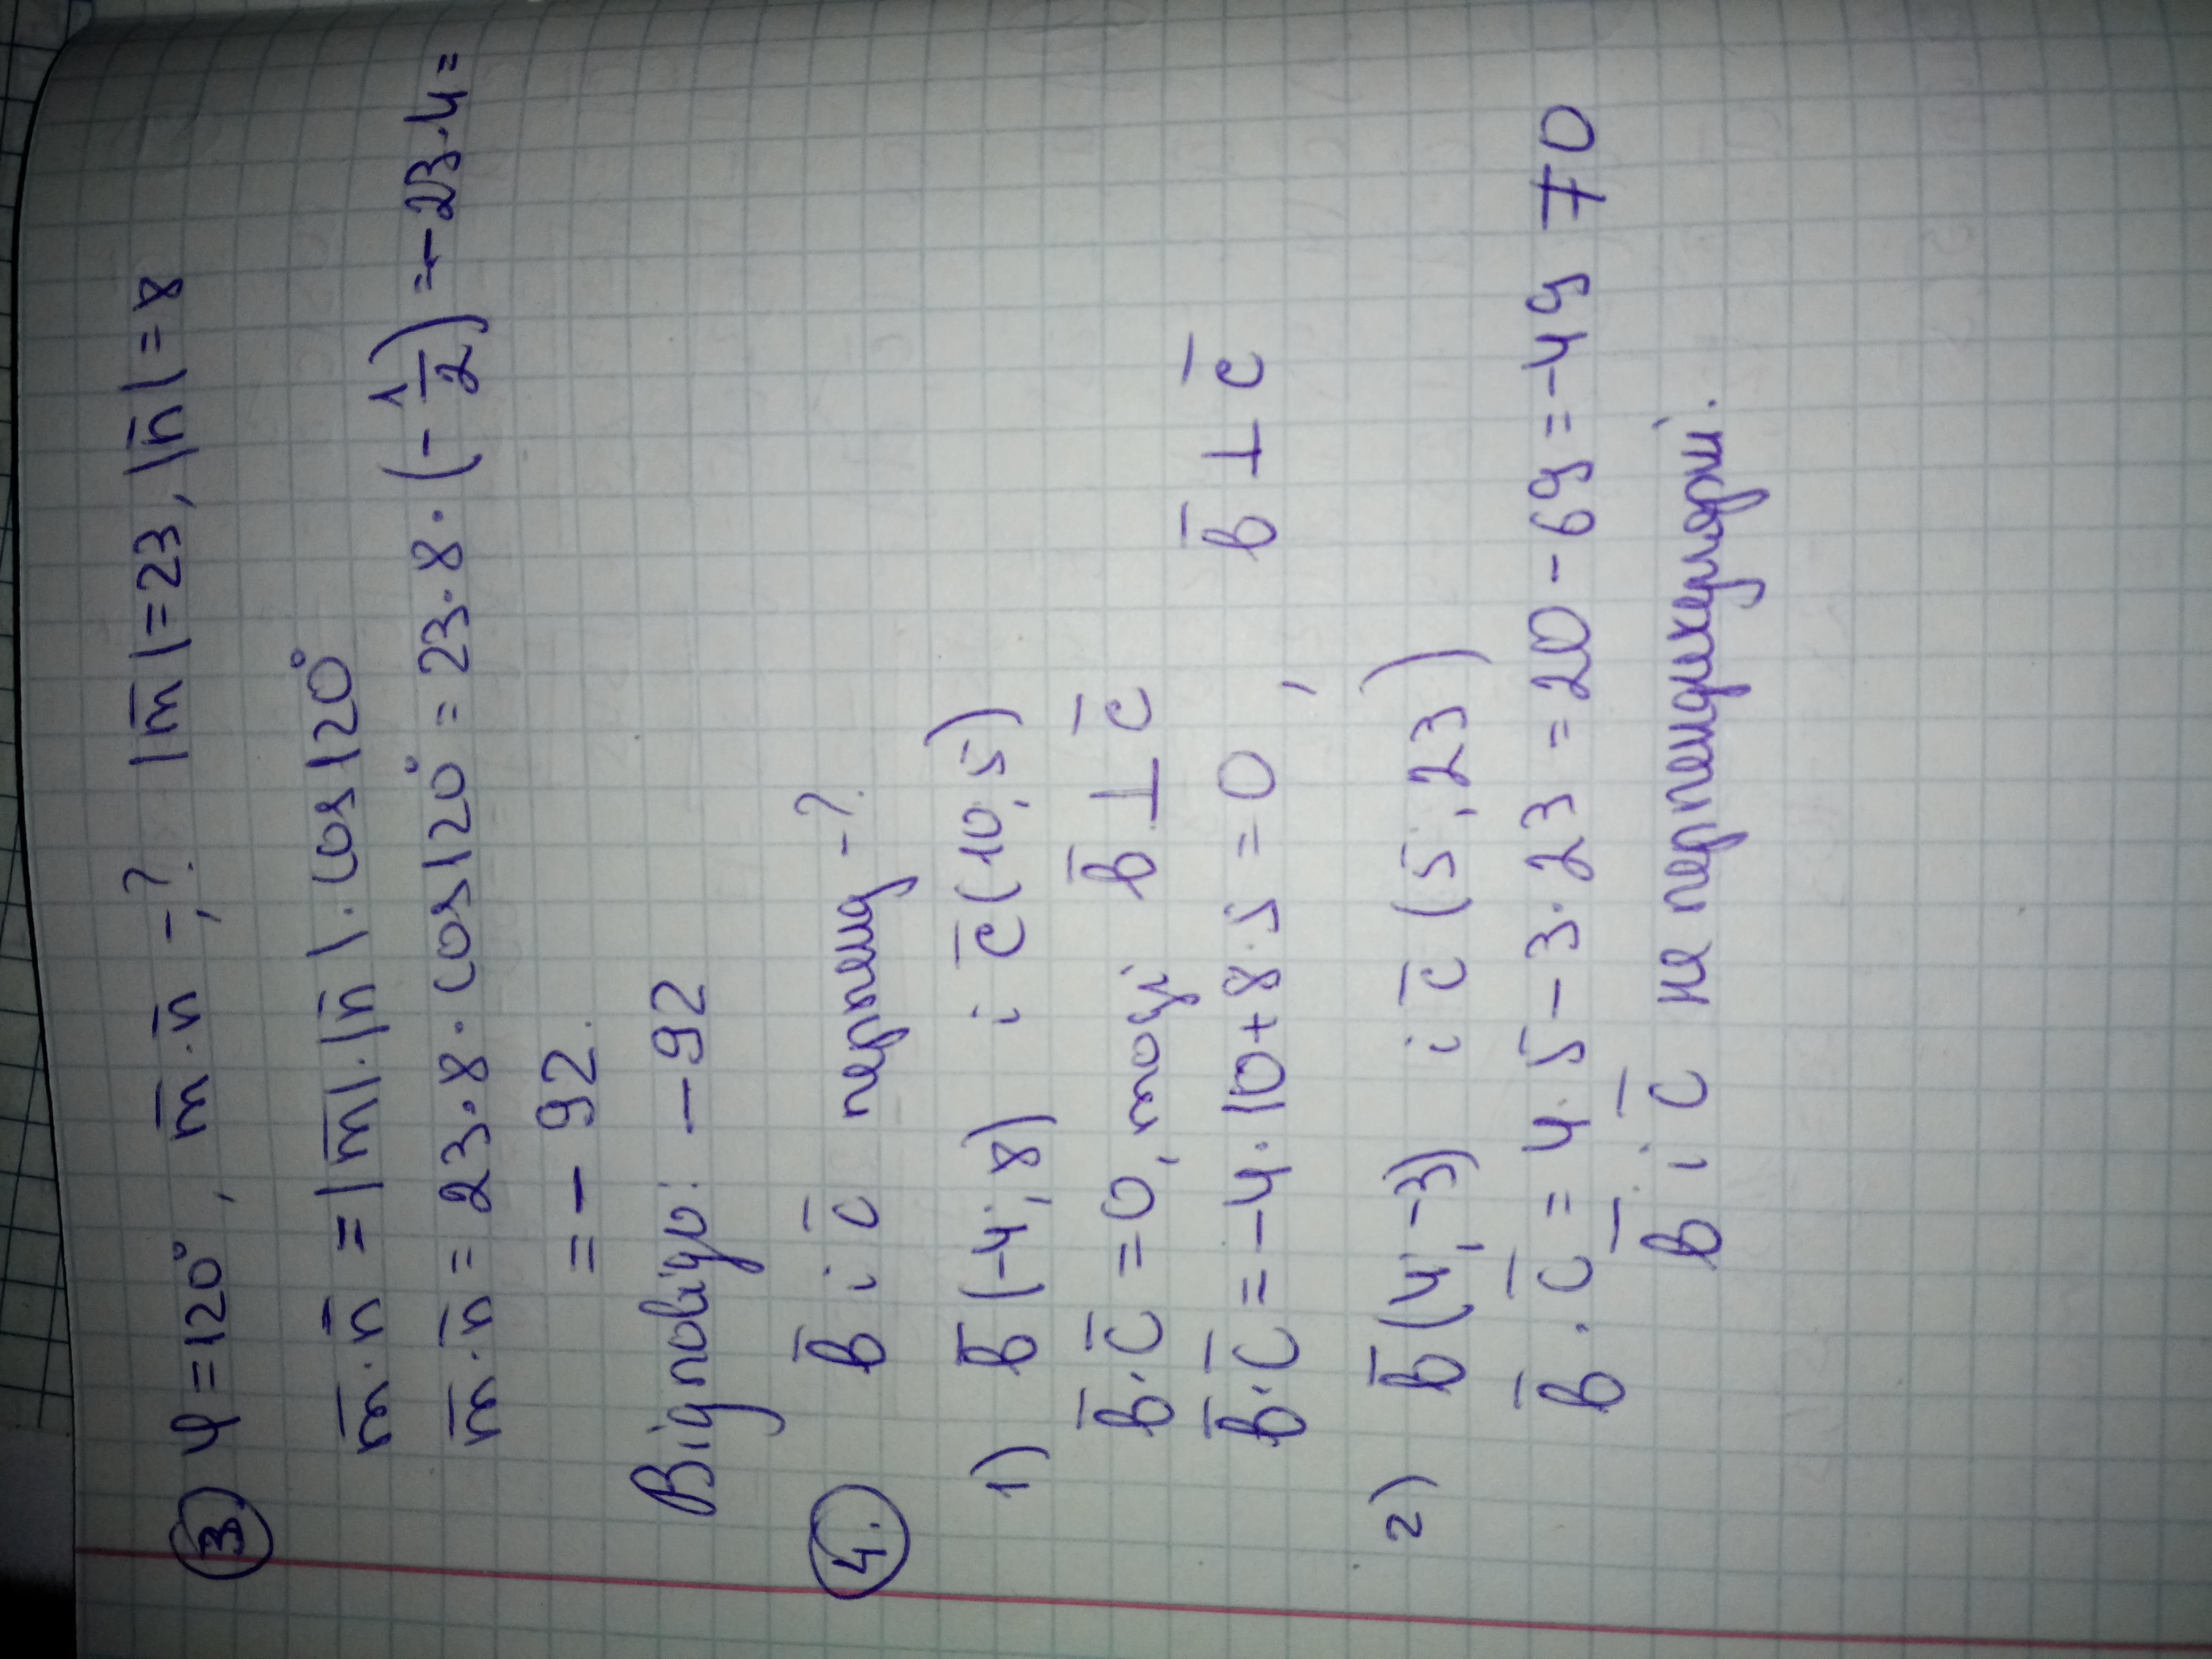 3. φ = 120°, m̅·n̅ -?. |m̅| = 23, |n̅| = 8
m̅·n̅ = |m̅|·|n̅|·cos120°
m̅·n̅ = 23·8·cos120° = 23·8·(-1/2) = -23·4 =
= -92.
Відповідь: -92
4. b̅ і c̅ перпенд -?
1) b̅(-4; 8) і c̅(10; 5)
b̅·c̅ = 0, тоді b̅ ⊥ c̅
b̅·c̅ = -4·10+8·5 = 0, b̅ ⊥ c̅
2) b̅(4; -3) і c̅(5; 23)
b̅·c̅ = 4·5-3·23 = 20-69 = -49 ≠ 0
b̅ і c̅ не перпендикулярні.